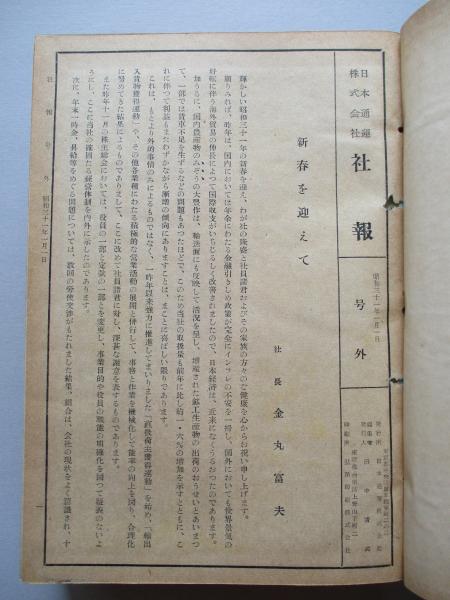 日本通運
株式会社
社報
号外
昭和三十一年一月一日
新春を迎えて
社長 金丸富夫
輝かしい昭和三十一年の新春を迎え、わが社の隆盛と社員諸君およびその家族の方々のご健康を心からお祝い申し上げます。
顧りみれば、昨年は、国内においては年余にわたる金融引きしめ政策が完全にインフレの不安を一掃し、国外においても世界景気の
好転に伴う海外貿易の伸長によつて国際収支がいちじるしく改善されましたので、日本経済は、近来になくうるおつたのであります。
加うるに、国内農産物のみぞうの大豊作は、輸送面にも反映して活況を呈し、増産された鉱工生産物の出荷のおうせいとあいまつ
て、一部では貨車不足を生ずるなどの問題もあつたほどで、このため当社の取扱量も前年に比し約一・六%の増加を示すとともに、こ
れに伴つて利益もまたわずかながら漸増の傾向にありますことは、まことに喜ばしい限りであります。
これは、もとより外的事情のみによるものではなく、一昨年以来強力に推進してまいりました「直扱荷主獲得運動」を始め、「輸出
入貨物獲得運動」や、その他各業種にわたる積極的な営業活動の展開と併行して、事務と作業を機械化して能率の向上を図り、合理化
に努めてきた結果によるものでありまして、ここに改めて社員諸君に対し、深甚な謝意を表するものであります。
また昨年十一月の株主総会においては、役員の一部と定款の一部とを変更し、事業目的や役員の職能の明確化を図つて疑義のないよ
うにし、ここに当社の確固たる経営体制を内外に示したのであります。
次に、年末一時金、昇給等をめぐる問題については、数回の労使交渉がもたれました結果、組合は、会社の現状をよく認識され、十
社報号外 昭和三十一年一月一日
一